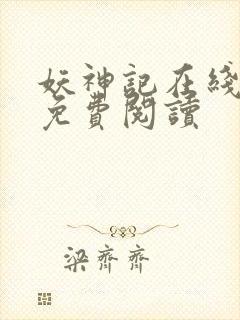 妖神記在綫
免費閱讀
梁齊齊